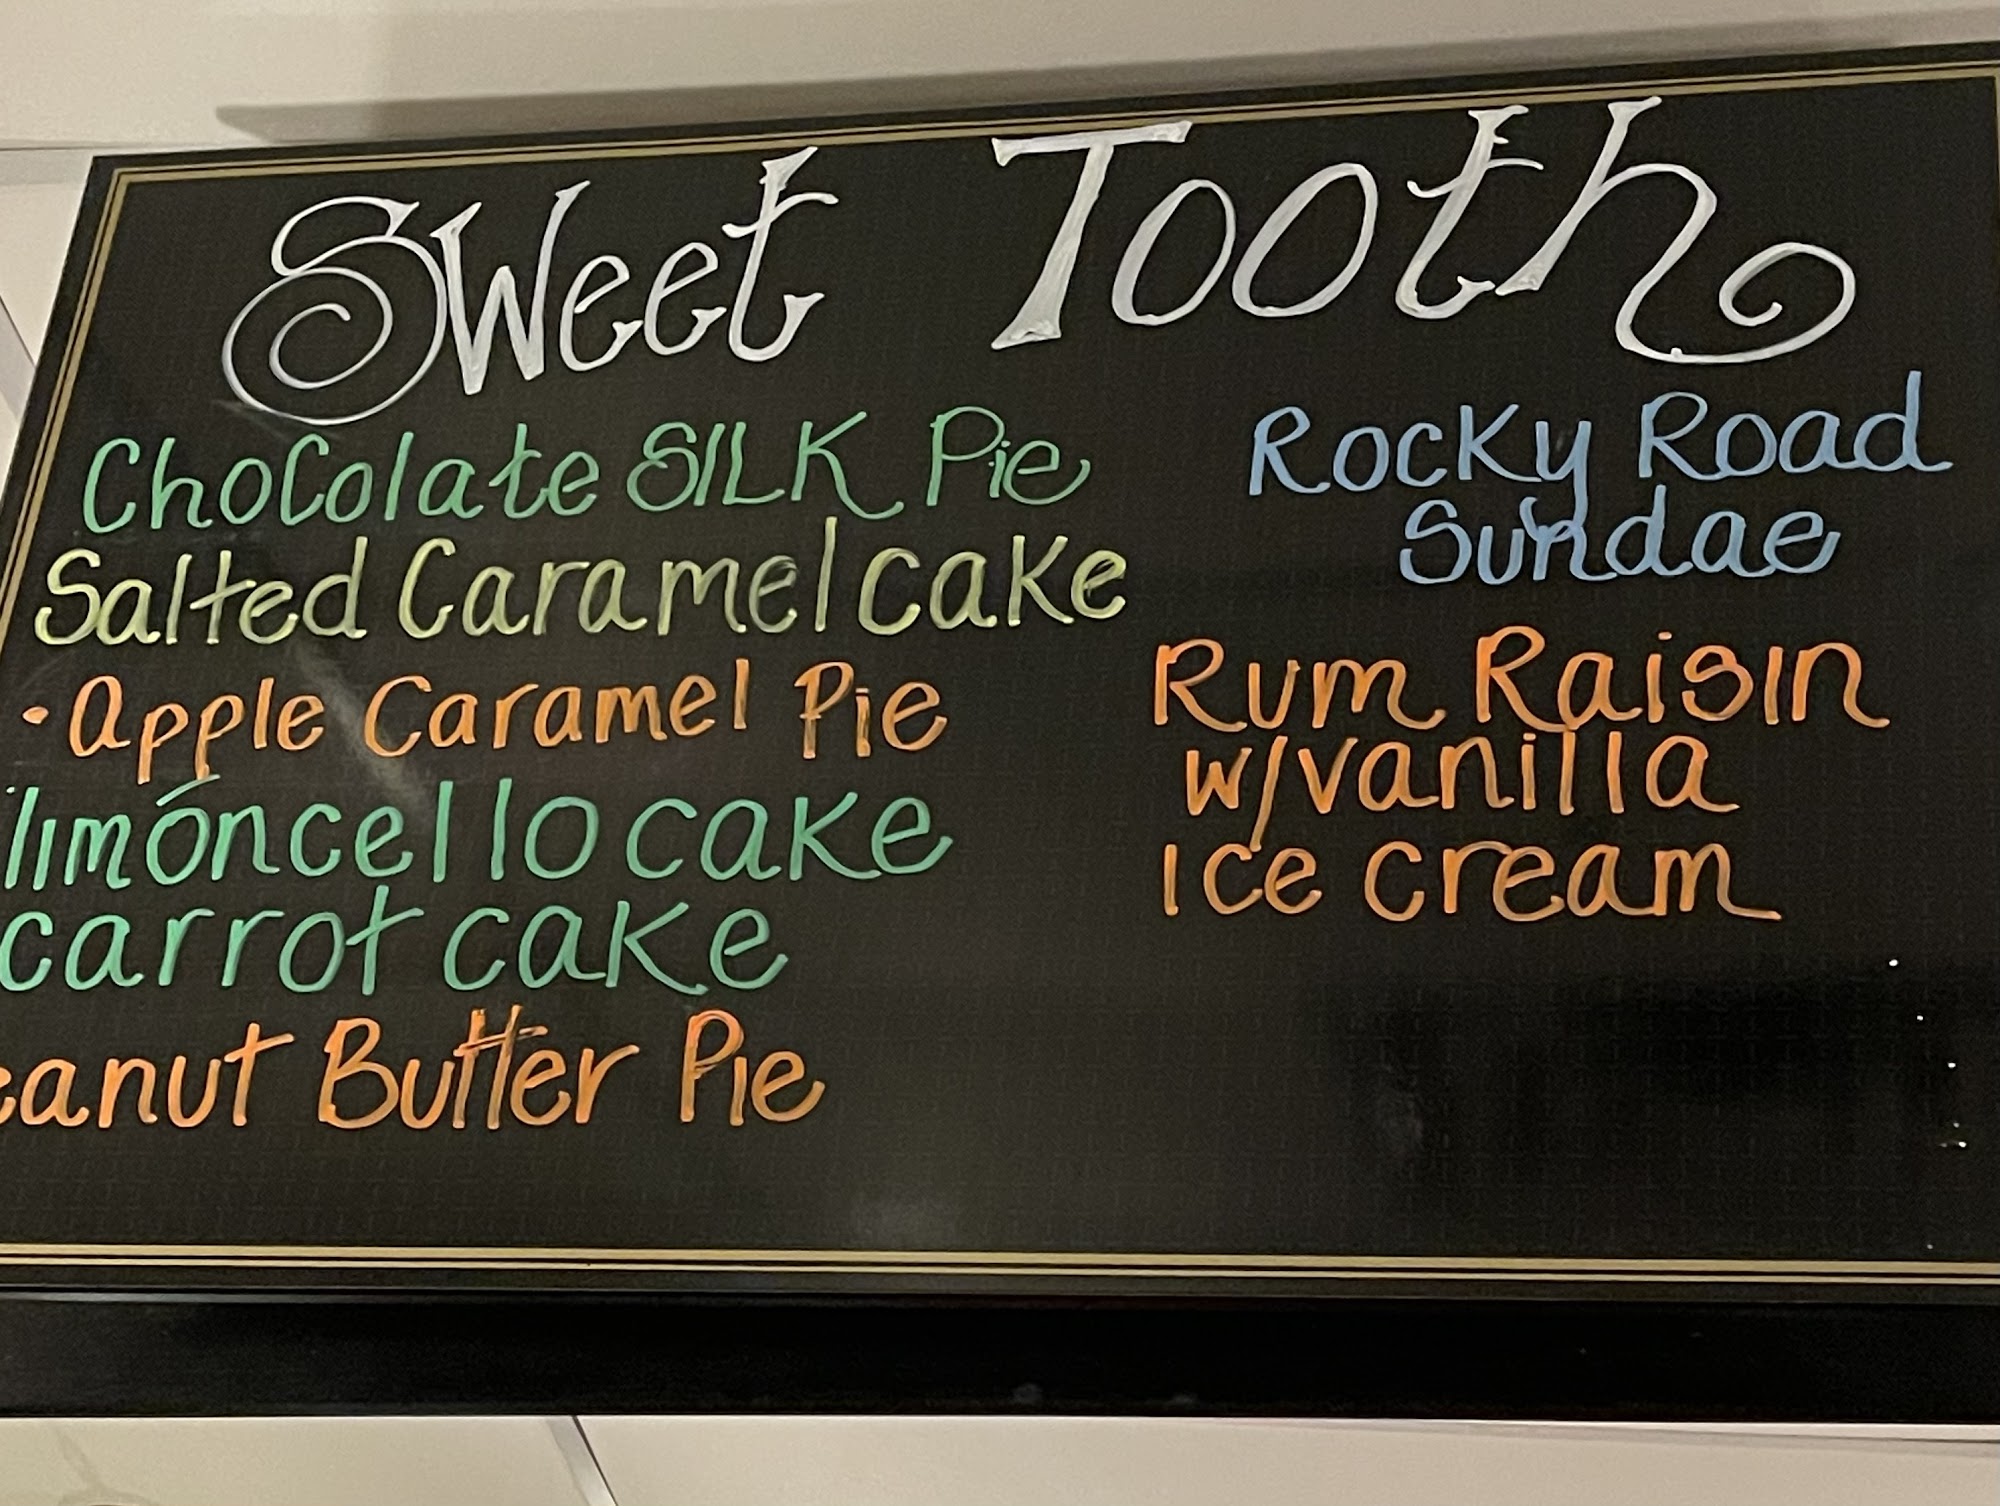 Sweet Tooth
Chocolate SILK Pie
Salted Caramel cake
• apple Caramel Pie
limoncello cake
carrot cake
eanut Butter Pie
Rocky Road
Sundae
Rum Raisin
w/vanilla
Ice cream